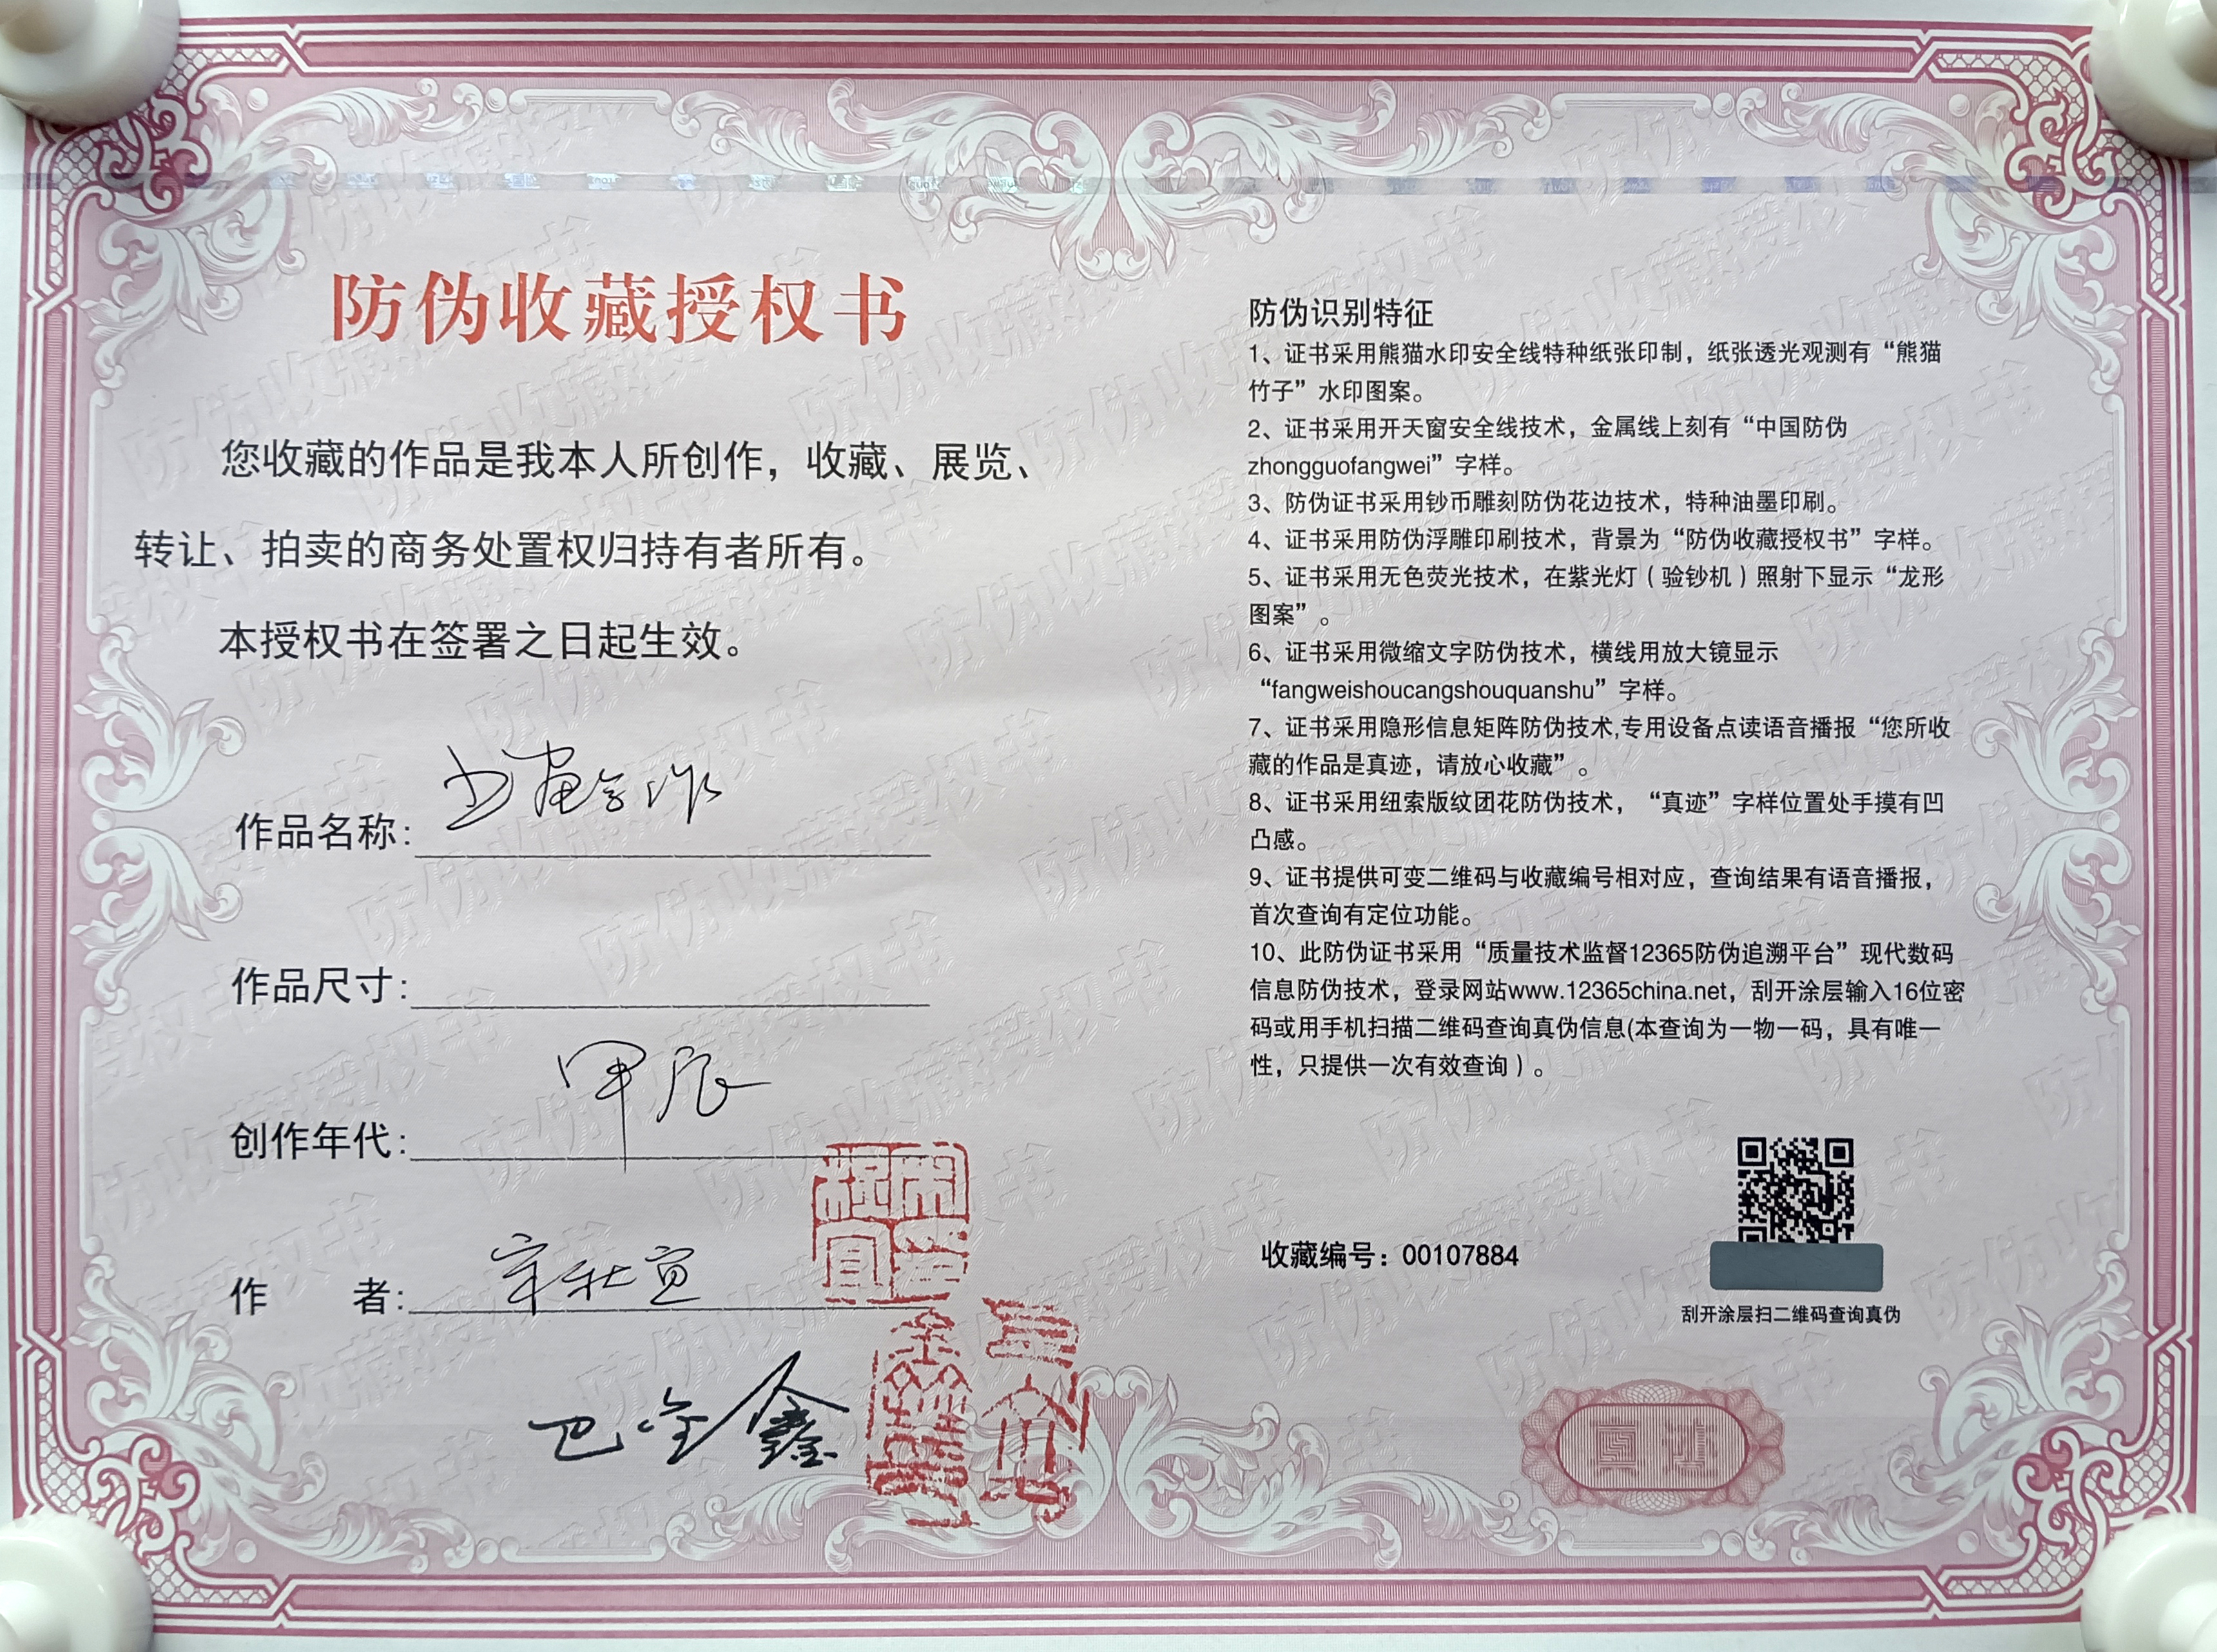 防伪收藏授权书
您收藏的作品是我本人所创作，收藏、展览、
转让、拍卖的商务处置权归持有者所有。
本授权书在签署之日起生效。
作品名称:
作品尺寸:
创作年代: 甲辰
作 者: 宋社宣
巴全鑫
防伪识别特征
1、证书采用熊猫水印安全线特种纸张印制，纸张透光观测有“熊猫
竹子”水印图案。
2、证书采用开天窗安全线技术，金属线上刻有“中国防伪
zhongguofangwei”字样。
3、防伪证书采用钞币雕刻防伪花边技术，特种油墨印刷。
4、证书采用防伪浮雕印刷技术，背景为“防伪收藏授权书”字样。
5、证书采用无色荧光技术，在紫光灯（验钞机）照射下显示“龙形
图案”。
6、证书采用微缩文字防伪技术，横线用放大镜显示
“fangweishoucangshouquanshu”字样。
7、证书采用隐形信息矩阵防伪技术,专用设备点读语音播报“您所收
藏的作品是真迹，请放心收藏”。
8、证书采用纽索版纹团花防伪技术，“真迹”字样位置处手摸有凹
凸感。
9、证书提供可变二维码与收藏编号相对应，查询结果有语音播报，
首次查询有定位功能。
10、此防伪证书采用“质量技术监督12365防伪追溯平台”现代数码
信息防伪技术，登录网站www.12365china.net，刮开涂层输入16位密
码或用手机扫描二维码查询真伪信息(本查询为一物一码，具有唯一
性，只提供一次有效查询）。
收藏编号：00107884
刮开涂层扫二维码查询真伪
真迹